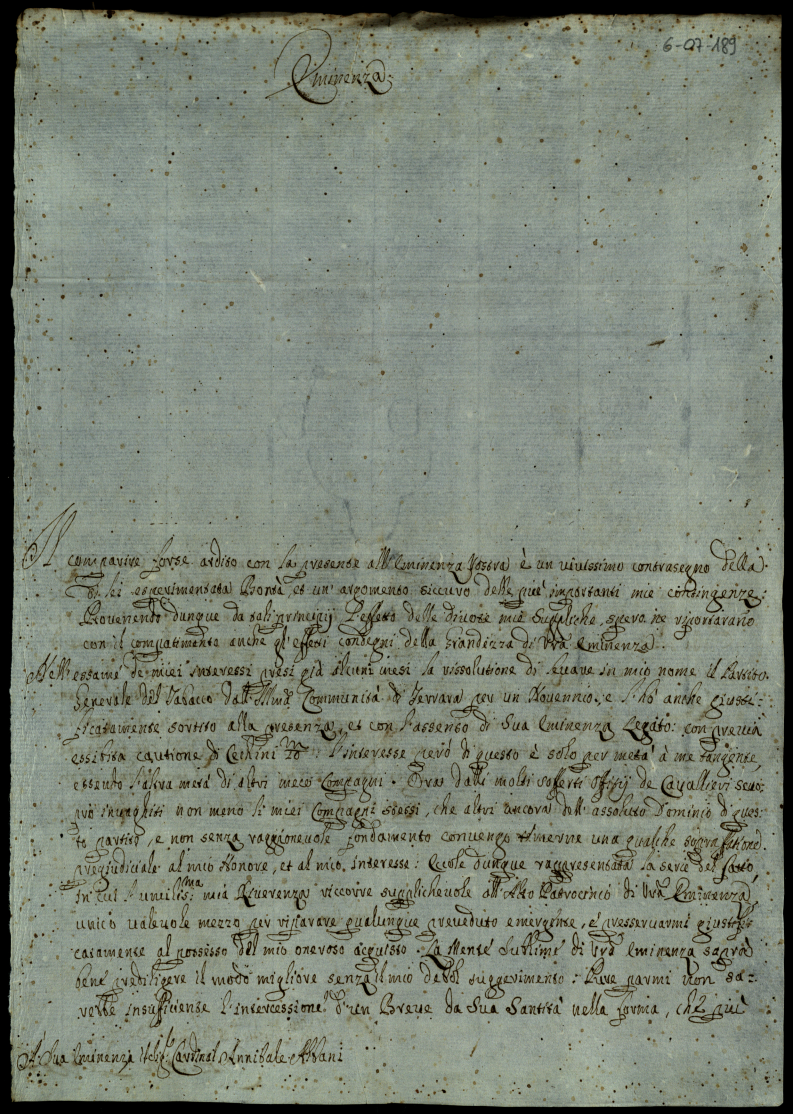 6-07-189
Eminenza.
Il comparire forse ardito con la presente all'Eminenza Vostra è un vivissimo contrasegno della
di lei esperimentata Bontà, et un' argomento sicuro delle più importanti mie contingenze:
Provenendo dunque da tali principij l'effetto delle divote mie Suppliche, spero ne riportarano
con il compatimento anche gl'effetti condegni della grandezza di Vrã Eminenza.
Nell'essame de miei interessi presi già alcuni mesi la rissolutione di levare in mio nome il Partito
Generale del Tabacco dall'Illma Communità di Ferrara per un Novennio, e l'hò anche giusti-
ficatamente sortito alla presenza, et con l'assenso di Sua Eminenza Legato: con previa
essibita cautione di Cechini l'interesse però di questo è solo per metà à me tangente,
essendo l'altra metà di altri meco Compagni. Ora dalli molti sofferti offitij de Cavallieri
invaghiti non meno li miei Compagni stessi, che altri ancora dell'assoluto Dominio di ques-
to partito, e non senza raggionevole fondamento convengo timerne una qualche soprafatione
pregiudiciale al mio Honore, et al mio Interesse: Eccole dunque rappresentata la serie del fatto,
in cui l'umilissma mia Riverenza ricorre supplichevole all'Alto Patrocinio di Vrã Eminenza,
unico valevole mezzo per riparare qualunque preveduto emergente, e presservarmi giustifi-
catamente al possesso del mio oneroso acquisto. La Mente sublime di Vrã Eminenza saprà
bene prediligere il modo migliore senza il mio debol suggerimento: Pure parmi non sa-
rebbe insufficiente l'intercessione d'un Breve da Sua Santità nella forma, che più
A Sua Eminenza Cardinal Annibale Albani